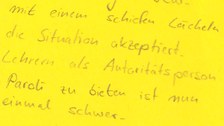 mit einem schiefen Lächeln
die Situation akzeptiert.
Lehrern als Autoritätsperson
Paroli zu bieten ist nun
einmal schwer.